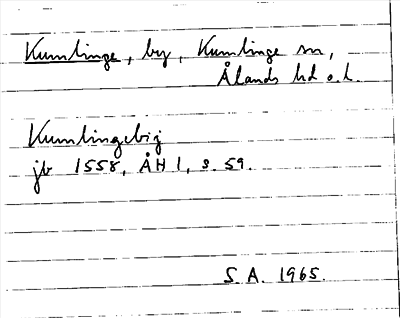 Kumlinge, by, Kumlinge sn,
Ålands hd o. l.
Kumlingebij
jb 1558, ÅH 1, s. 59.
S A. 1965.